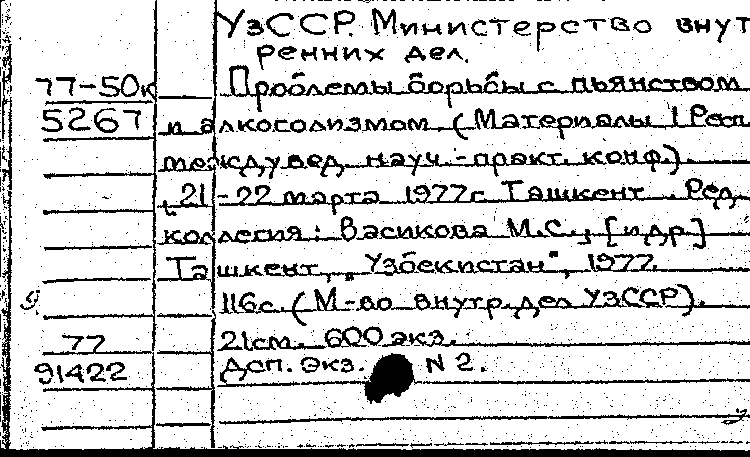 УзССР. Министерство внут
ренних дел.
77-50к Проблемы борьбы с пьянством
5267 и алкоголизмом. (Материалы 1 Респ.
междувед. науч.-практ. конф.).
21-22 марта 1977г Ташкент. Ред.
коллегия: Васикова М.С., [и др.]
Ташкент, „Узбекистан", 1977.
116с. (М-во внутр. дел УзССР).
77 21см. 600 экз.
91422 Дсп. Экз. N 2.